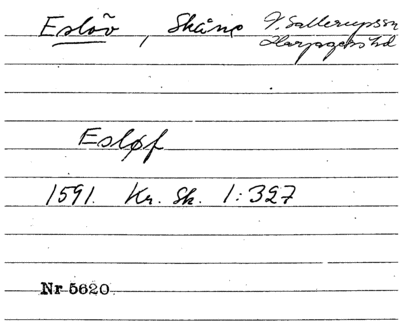 Eslöv, Skåne V. Sallerups sn
Harjagers hd
Esløf
1591. Kr. Sk. 1:327
Nr 5620